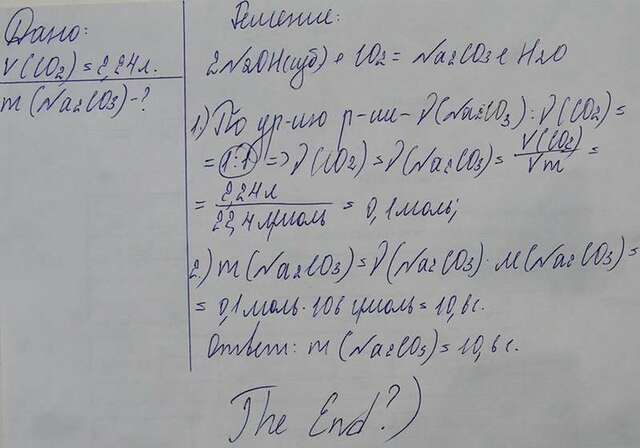 Дано:
V(CO2)=2,24л.
m(Na2CO3)-?
Решение:
2NaOH(изб)+CO2=Na2CO3+H2O
1.) По ур-ию р-ии- ν(Na2CO3):ν(CO2)=
=1:1 => ν(CO2)=ν(Na2CO3)= V(CO2)/Vm =
= 2,24л/22,4л/моль = 0,1моль;
2.) m(Na2CO3)=ν(Na2CO3)·M(Na2CO3)=
=0,1моль·106г/моль=10,6г.
Ответ: m(Na2CO3)=10,6г.
The End?)